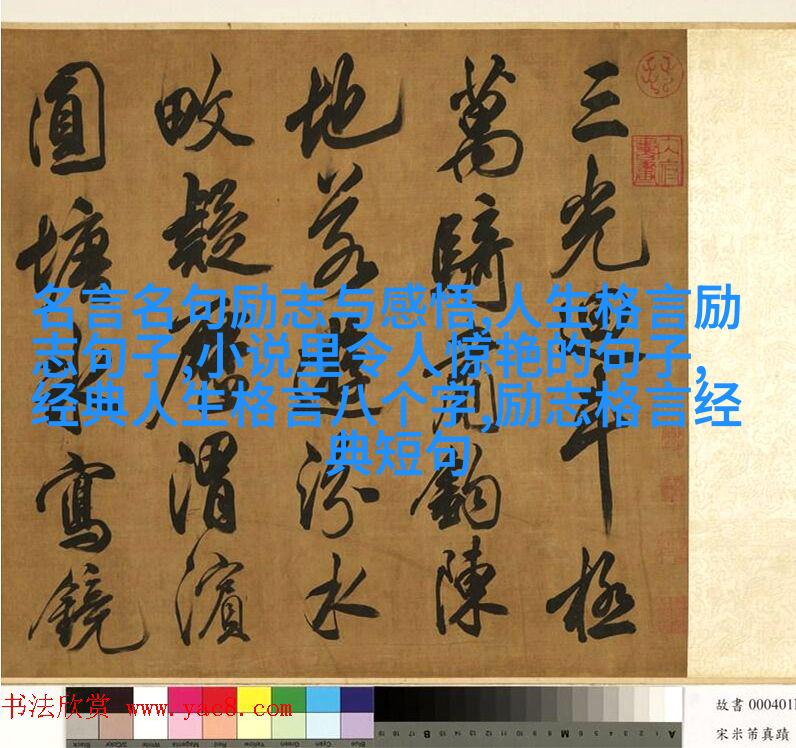 三光斗極
萬騎鉤陳
地若遊汾水
畋疑歷渭濱
圓塘寫鏡
名言名句励志与感悟,人生格言励
志句子,小说里令人惊艳的句子,
经典人生格言八个字,励志格言经
典短句
书法欣赏 www.yac8.com
故書 000401
宋米芾真蹟